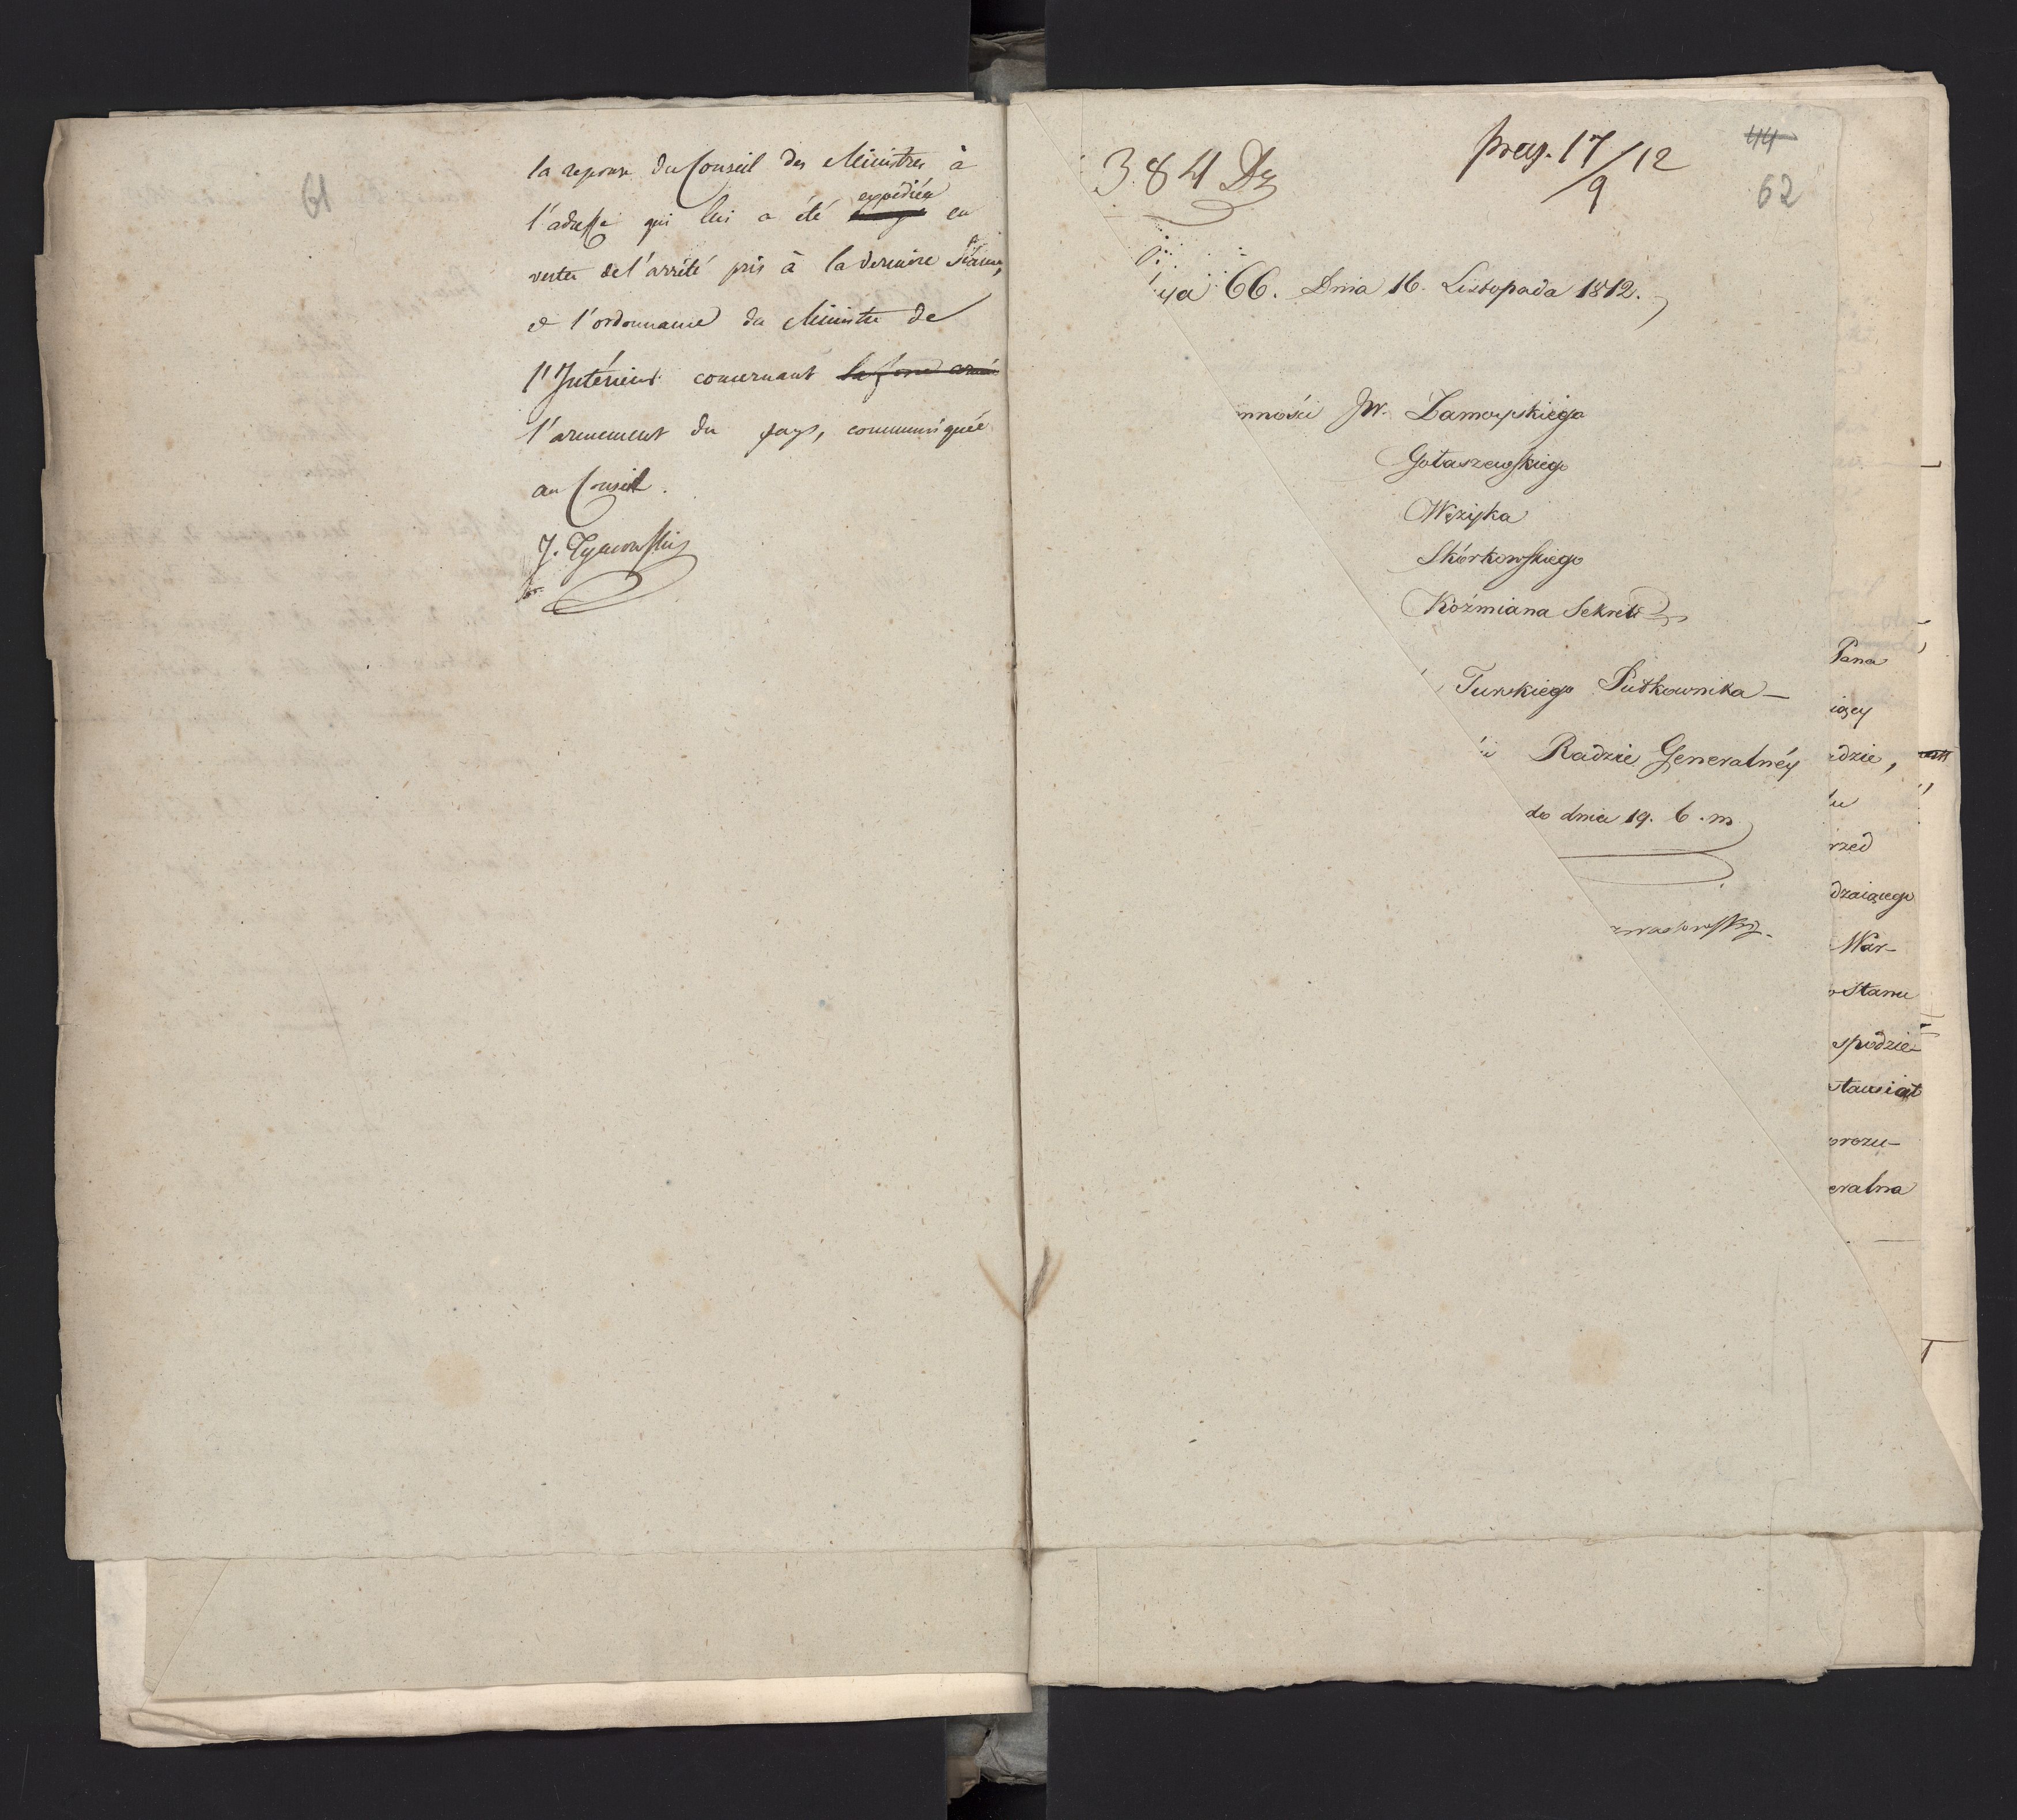 61
la reponse du Conseil des Ministres à
expediée
l'adresse qui lui a été en
vertu de l'arrêté pris à la derniere Séance,
et l'ordonnance du Ministre de
l'Intérieur concernant la force armée
l'armement du pays, communiquée
au Conseil.
44
62
17/12
9
384 Dz
ya 66. Dnia 16. Listopada 1812.
nności JW. Zamoyskiego
Gołaszewskiego
Wężyka
Skórkowskiego
Koźmiana Sekret
Turskiego Pułkownika
Radzie Generalnéy
do dnia 19. b. m
Pana
iący
adzie,
rzed
dzaiącego
War-
Stanu
spodzie-
orozu-
eralna